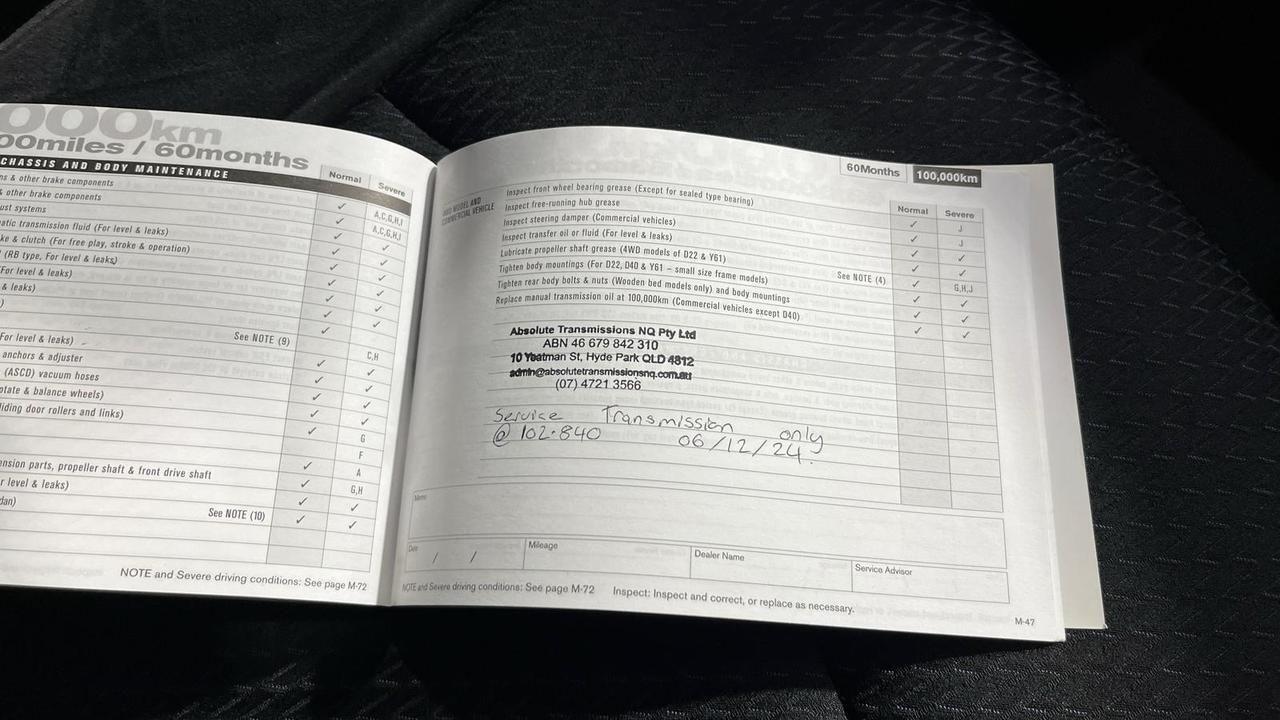 000km
00miles / 60months
CHASSIS AND BODY MAINTENANCE
Normal Severe
& other brake components A,C,G,H,I
other brake components A,C,G,H,I
ust systems
atic transmission fluid (For level & leaks)
ke & clutch (For free play, stroke & operation)
(RB type, For level & leaks)
For level & leaks)
& leaks)
)
See NOTE (9)
For level & leaks) C,H
anchors & adjuster
(ASCD) vacuum hoses
otate & balance wheels)
liding door rollers and links)
G
F
A
ension parts, propeller shaft & front drive shaft G,H
r level & leaks)
dan) See NOTE (10)
NOTE and Severe driving conditions: See page M-72
60Months 100,000km
4WD MODEL AND
COMMERCIAL VEHICLE
Normal Severe
Inspect front wheel bearing grease (Except for sealed type bearing) ✓ J
Inspect free-running hub grease ✓ J
Inspect steering damper (Commercial vehicles) ✓ ✓
Inspect transfer oil or fluid (For level & leaks) ✓ ✓
Lubricate propeller shaft grease (4WD models of D22 & Y61) See NOTE (4) ✓ G,H,J
Tighten body mountings (For D22, D40 & Y61 – small size frame models) ✓ ✓
Tighten rear body bolts & nuts (Wooden bed models only) and body mountings ✓ ✓
Replace manual transmission oil at 100,000km (Commercial vehicles except D40) ✓ ✓
Absolute Transmissions NQ Pty Ltd
ABN 46 679 842 310
10 Yeatman St, Hyde Park QLD 4812
admin@absolutetransmissionsnq.com.au
(07) 4721 3566
Service Transmission only
@ 102.840 06/12/24.
Memo
Date / / Mileage Dealer Name Service Advisor
NOTE and Severe driving conditions: See page M-72 Inspect: Inspect and correct, or replace as necessary.
M-47